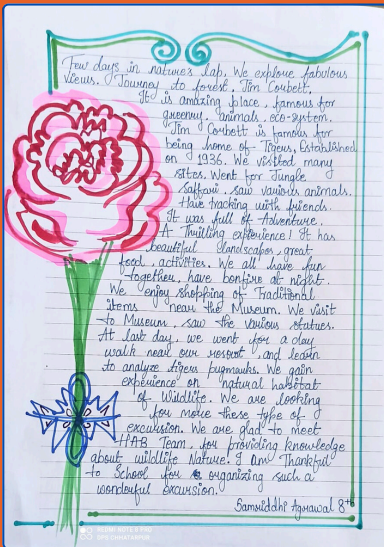 Few days in nature's lap. We explore fabulous
views. Journey to forest, Jim Corbett.
It is amazing place, famous for
greenery, animals, eco-system.
Jim Corbett is famous for
being home of Tigers, Established
on 1936. We visited many
sites. Went for Jungle
saffari, saw various animals.
Have tracking with friends.
It was full of Adventure.
A Thrilling experience! It has
beautiful landscapes, great
food, activities. We all have fun
together, have bonfire at night.
We enjoy shopping of Traditional
items near the Museum. We visit
to Museum, saw the various statues.
At last day, we went for a day
walk near our resort, and learn
to analyze tigers pugmarks. We gain
experience on natural habitat
of Wildlife. We are looking
for more these type of
excursion. We are glad to meet
HAB Team, for providing knowledge
about wildlife Nature. I am Thankful
to School for organizing such a
wonderful excursion.
Samriddhi Agrawal 8th
REDMI NOTE 8 PRO
DPS CHHATARPUR